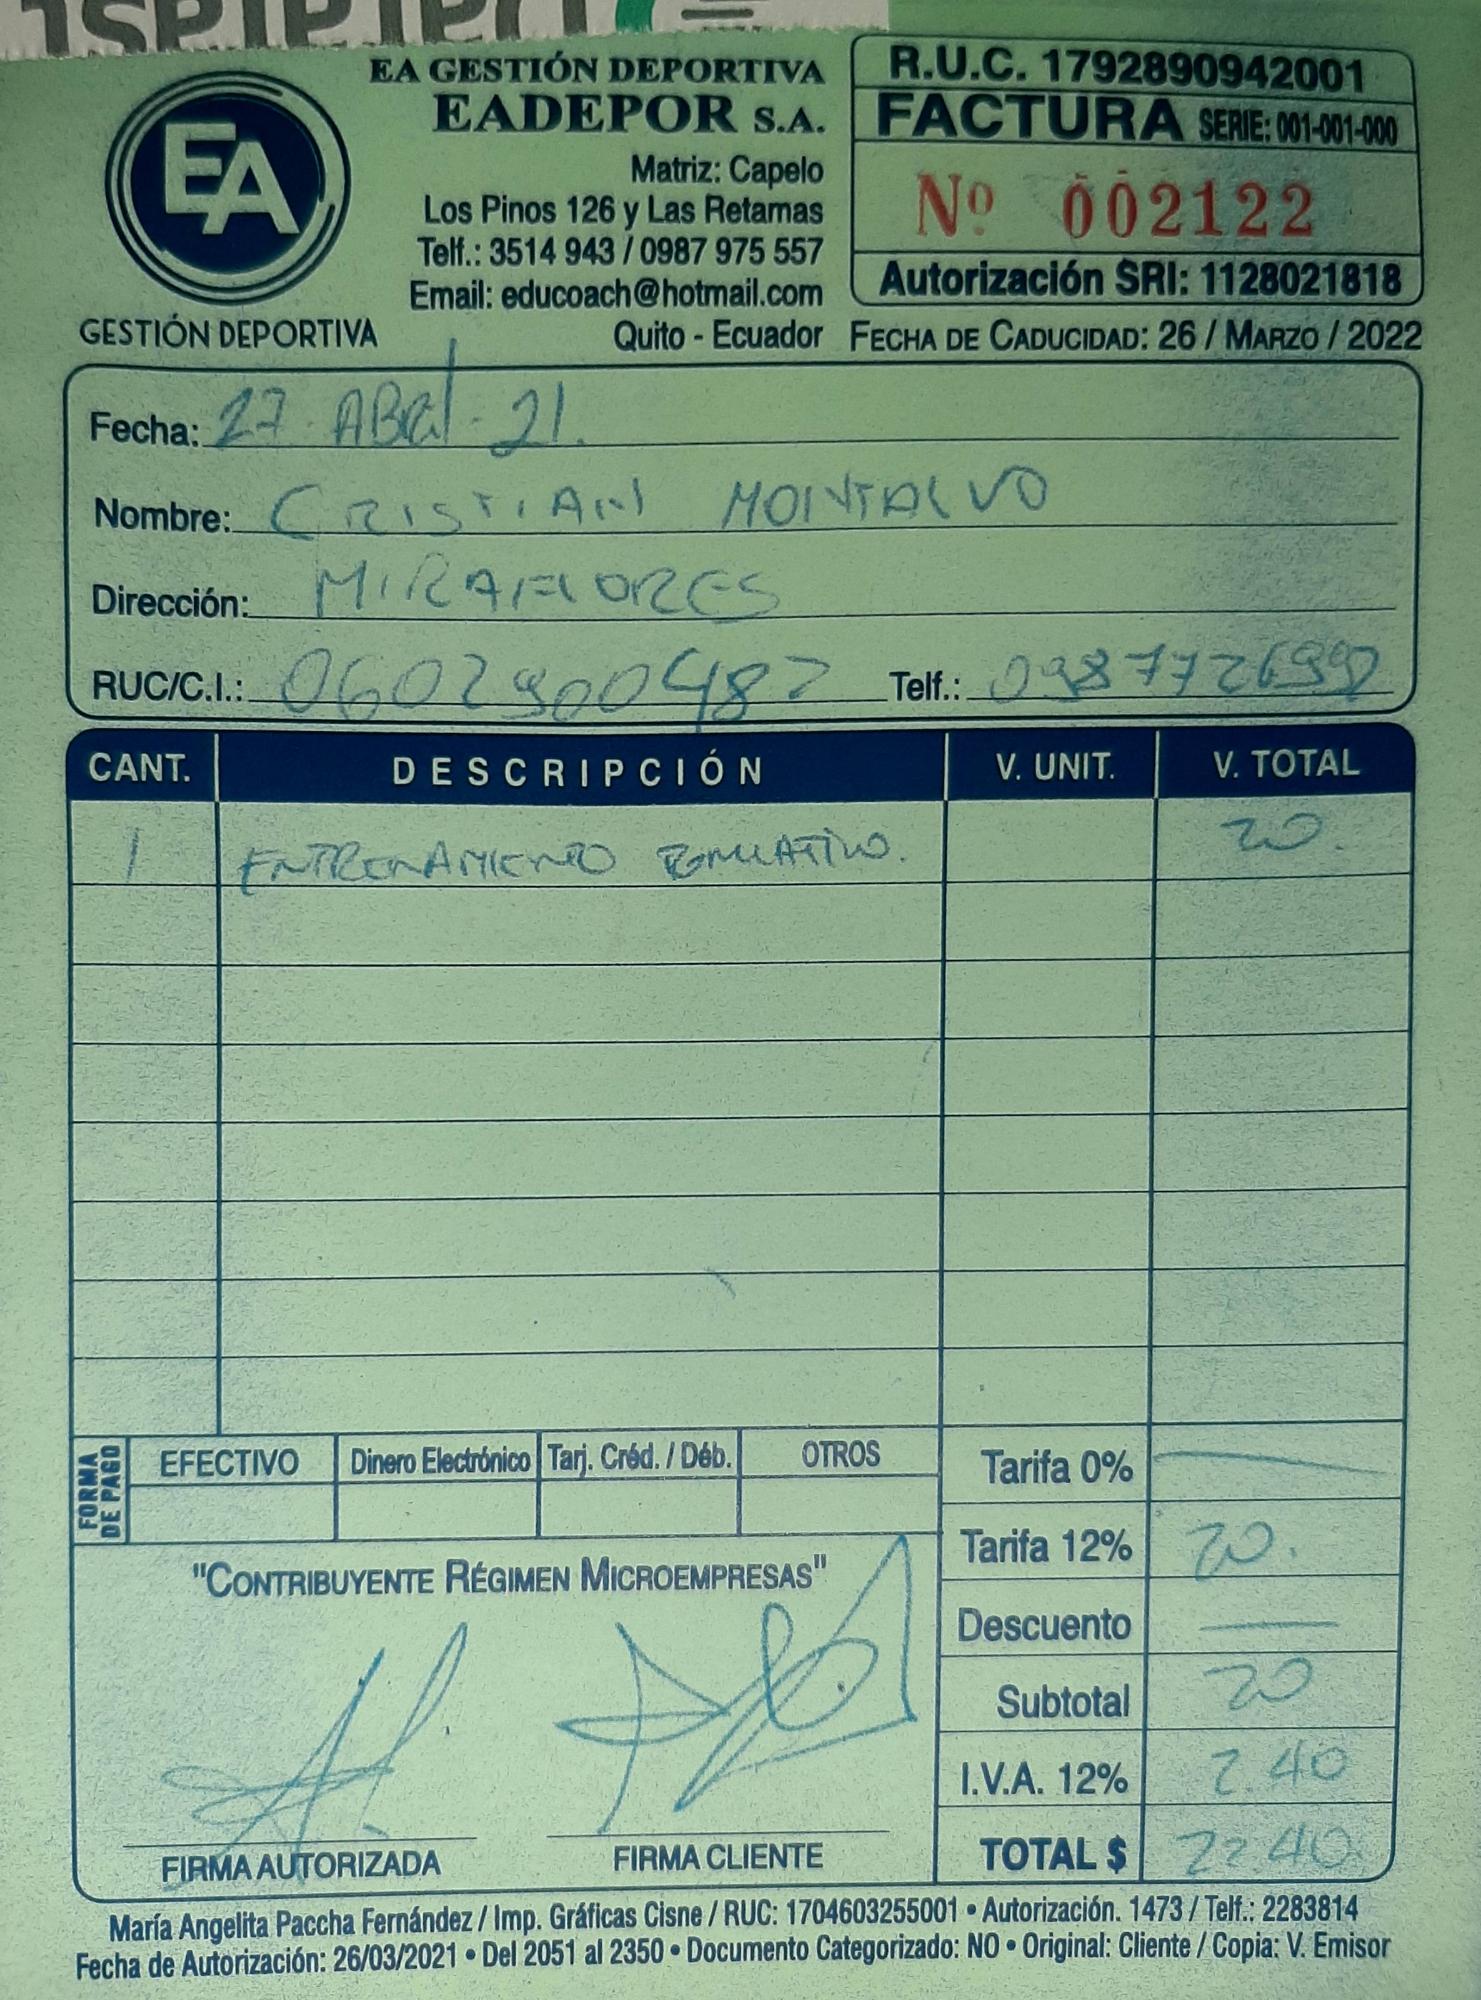 EA GESTIÓN DEPORTIVA
EADEPOR S.A.
Matriz: Capelo
Los Pinos 126 y Las Retamas
Telf.: 3514 943 / 0987 975 557
Email: educoach@hotmail.com
Quito - Ecuador
EA
GESTIÓN DEPORTIVA
R.U.C. 1792890942001
FACTURA SERIE: 001-001-000
Nº 002122
Autorización SRI: 1128021818
FECHA DE CADUCIDAD: 26 / MARZO / 2022
Fecha: 27 ABRIL - 21.
Nombre: CRISTIAN MONTALVO
Dirección: MIRAFLORES
RUC/C.I.: 0602900482 Telf.:
CANT. DESCRIPCIÓN V. UNIT. V. TOTAL
1 ENTRENAMIENTO FORMATIVO. 20.
FORMA DE PAGO
EFECTIVO Dinero Electrónico Tarj. Créd. / Déb. OTROS
Tarifa 0%
Tarifa 12% 20.
Descuento
Subtotal 20
I.V.A. 12% 2.40
TOTAL $ 22.40
"CONTRIBUYENTE RÉGIMEN MICROEMPRESAS"
FIRMA AUTORIZADA FIRMA CLIENTE
María Angelita Paccha Fernández / Imp. Gráficas Cisne / RUC: 1704603255001 • Autorización. 1473 / Telf.: 2283814
Fecha de Autorización: 26/03/2021 • Del 2051 al 2350 • Documento Categorizado: NO • Original: Cliente / Copia: V. Emisor